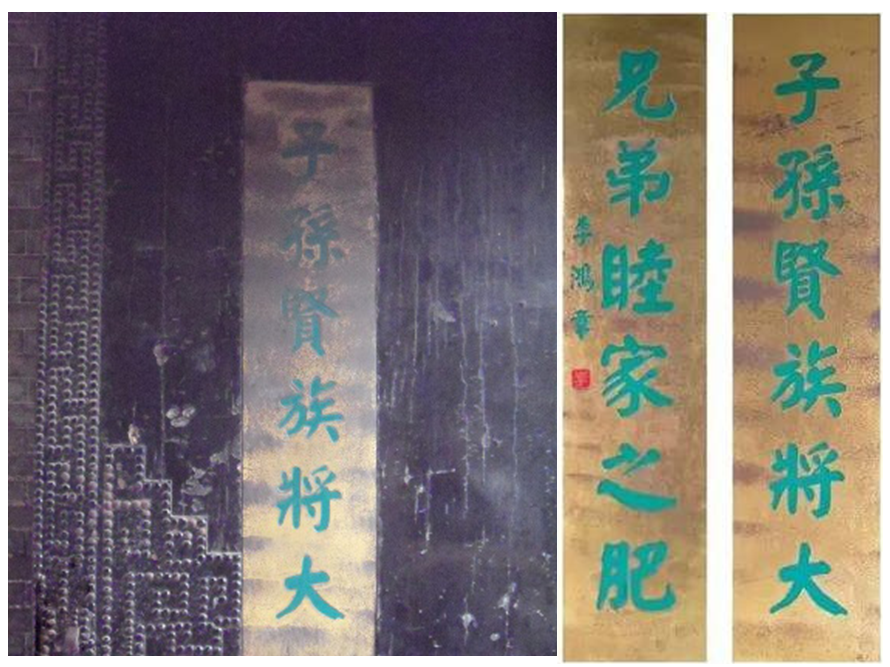 子孫賢族將大
子孫賢族將大
兄弟睦家之肥
李鴻章